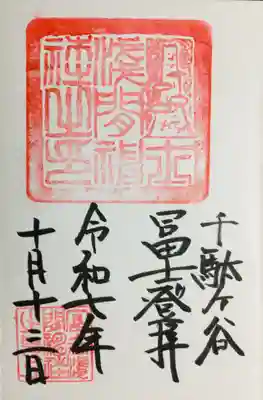 千駄ヶ谷
冨士登拝
令和七年
十月十三日